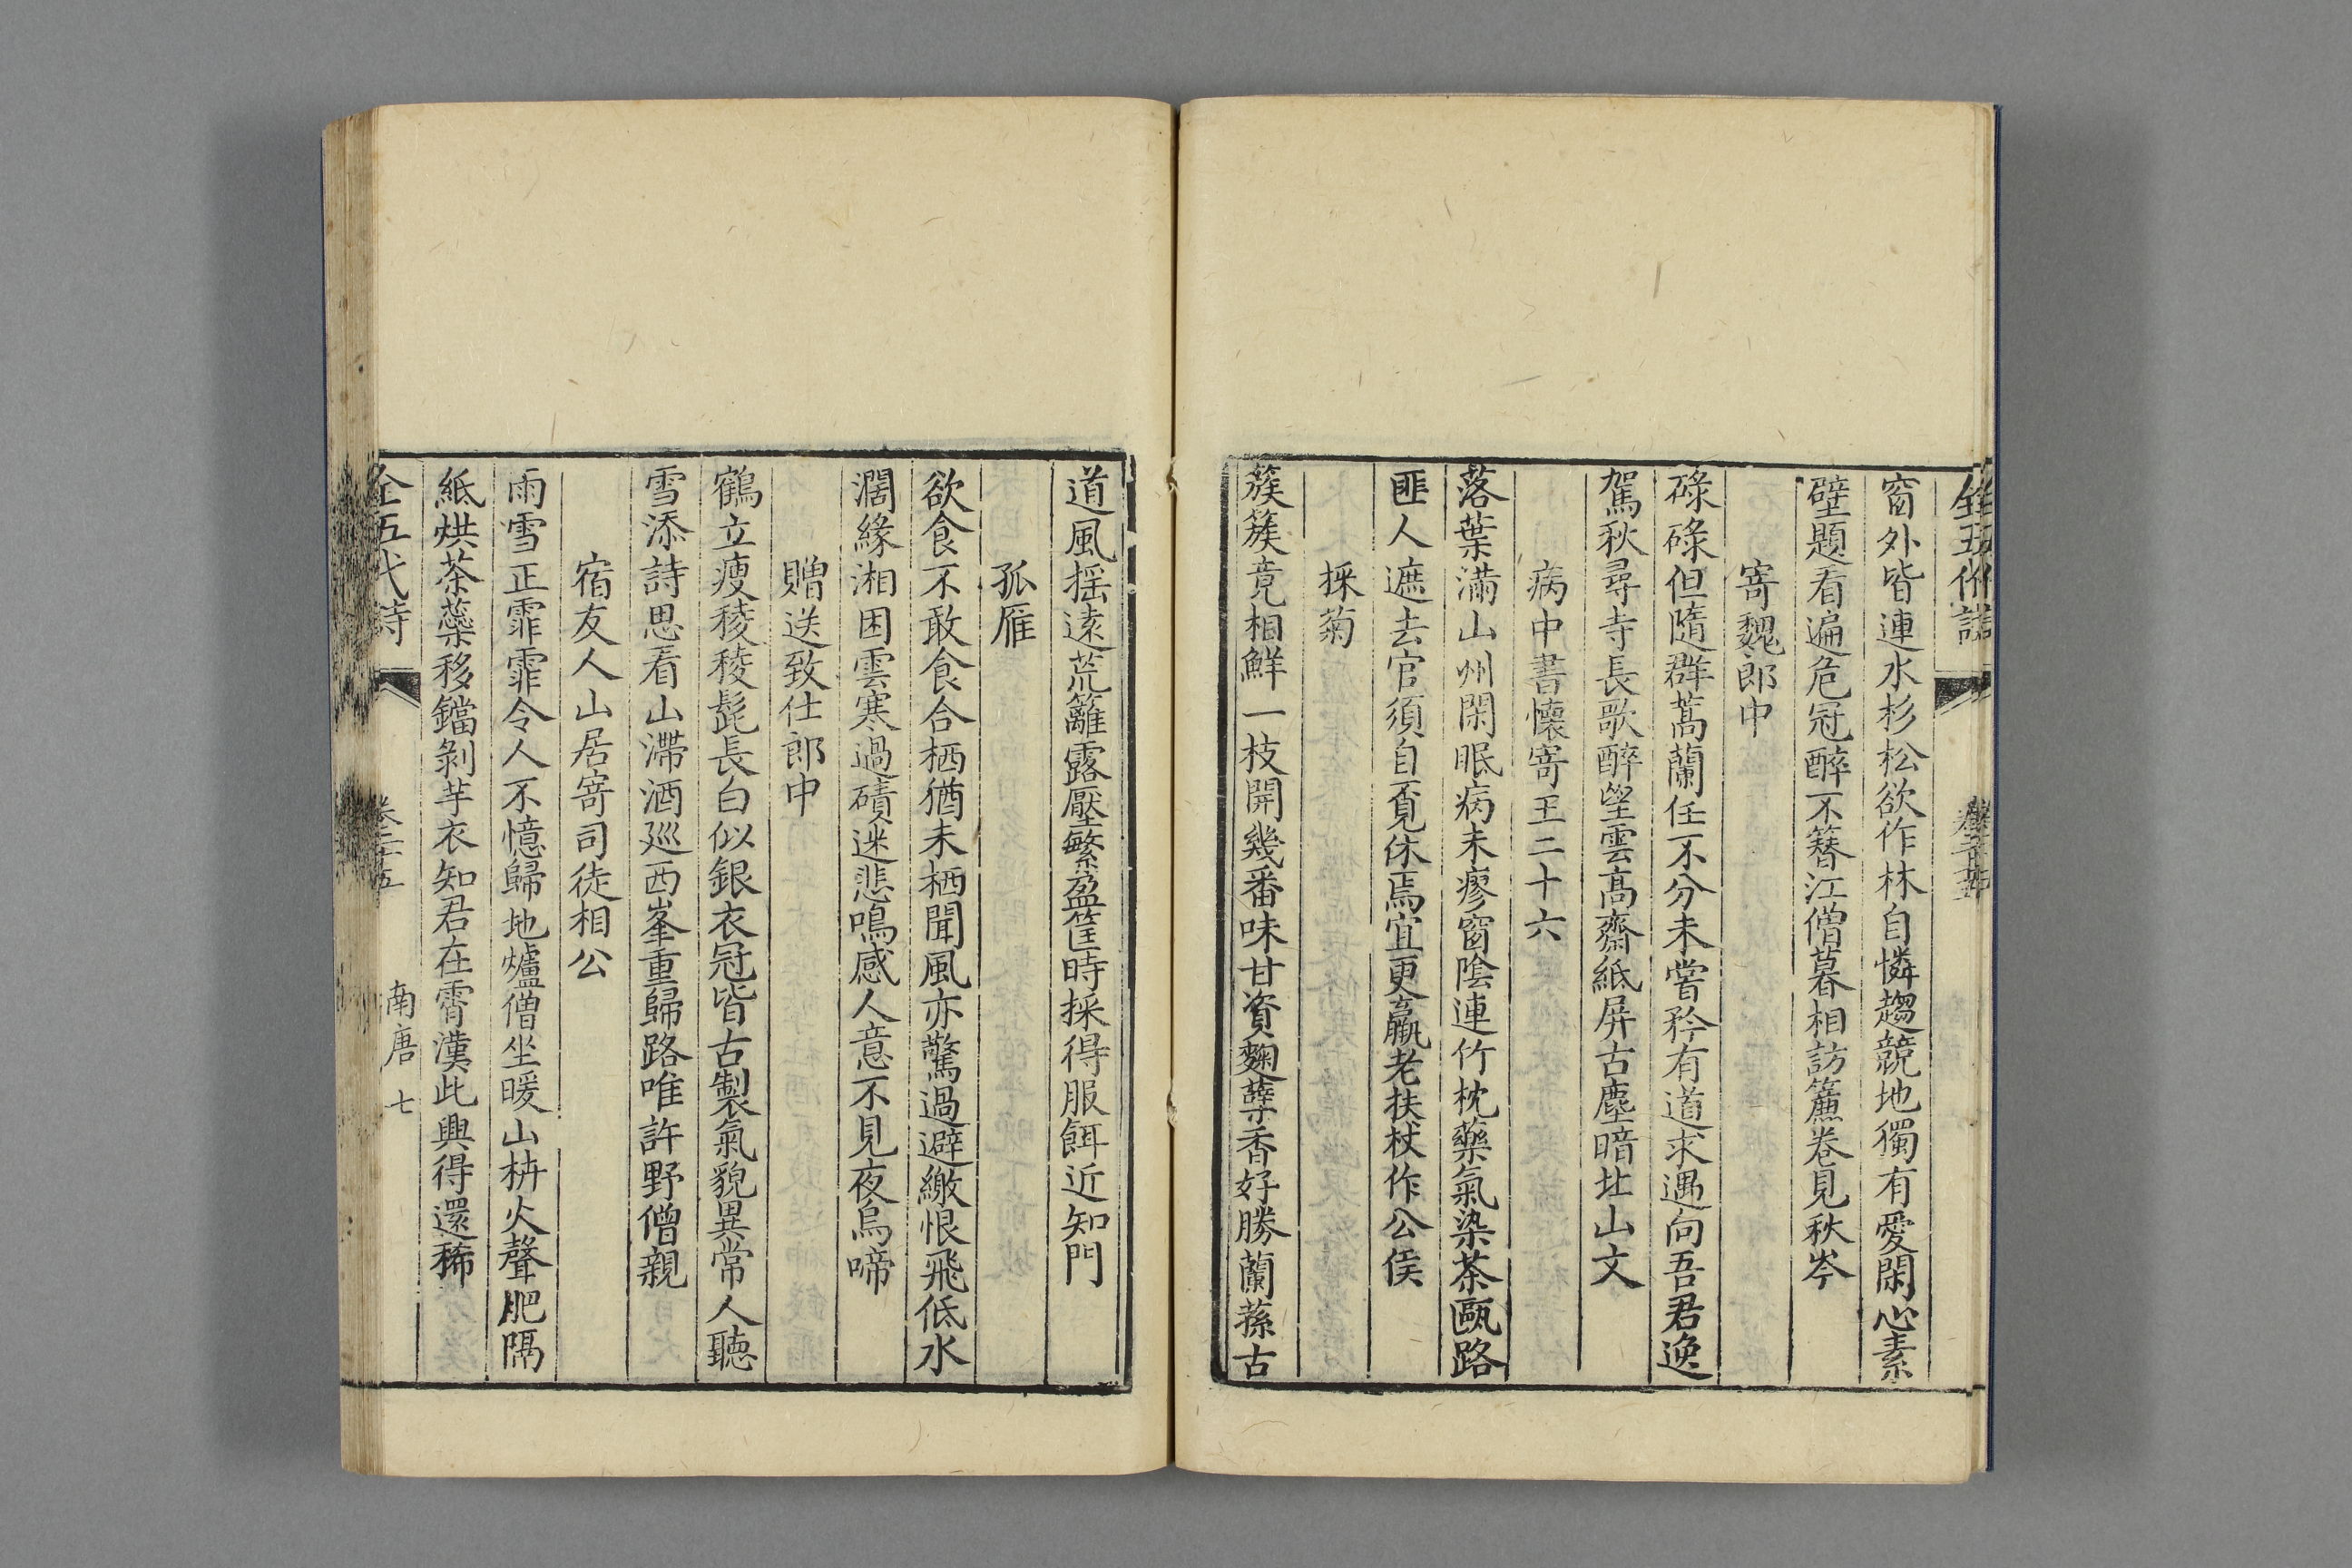 窗外皆連水杉松欲作林自憐趨競地獨有愛閑心素
壁題看遍危冠醉不簪江僧暮相訪簾卷見秋岑
寄魏郎中
碌碌但隨群蒿蘭任不分未嘗矜有道求遇向吾君逸
駕秋尋寺長歌醉望雲髙齋紙屏古塵暗北山文
病中書懷寄王二十六
落葉滿山州閑眠病未瘳窗陰連竹枕藥氣染茶甌路
匪人遮去官須自覓休焉宜更羸老扶杖作公侯
採菊
蔟蔟竟相鮮一枝開幾番味甘資麴糵香好勝蘭蓀古
道風搖遠荒籬露壓繁盈筐時採得服餌近知門
孤雁
欲食不敢食合栖猶未栖聞風亦驚過避繳恨飛低水
濶緣湘困雲寒過磧迷悲鳴感人意不見夜烏啼
贈送致仕郎中
鶴立瘦稜稜髭長白似銀衣冠皆古製氣貌異常人聽
雪添詩思看山滯酒廵西峯重歸路唯許野僧親
宿友人山居寄司徒相公
雨雪正霏霏令人不憶歸地爐僧坐暖山枿火聲肥隔
紙烘茶蘂移鐺剝芋衣知君在霄漢此興得還稀
全五代詩
卷二十五
南唐
七